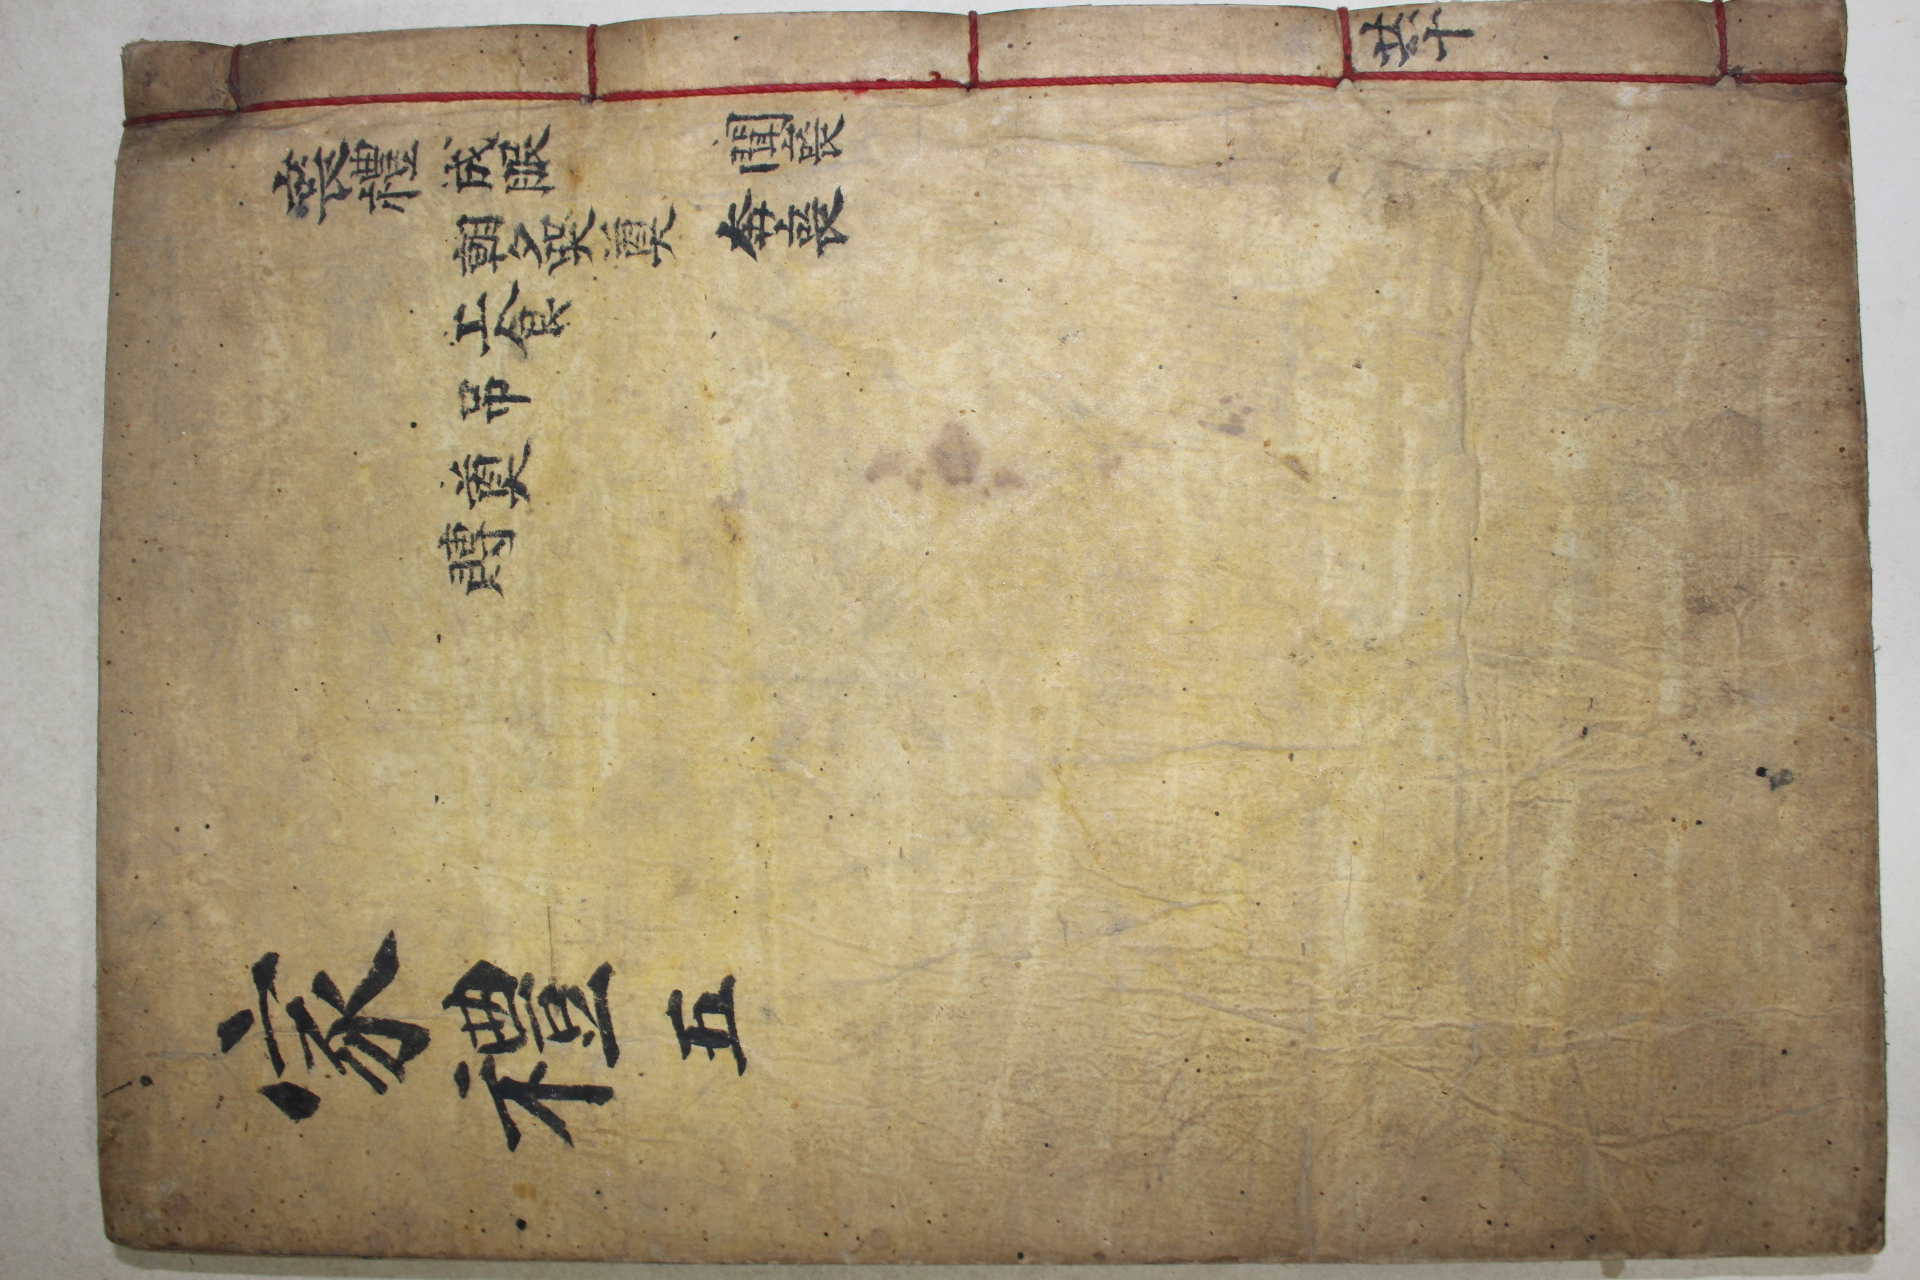 共十
喪禮 成服 聞喪
朝夕哭奠 奔喪
上食
吊
奠
賻
家禮 五